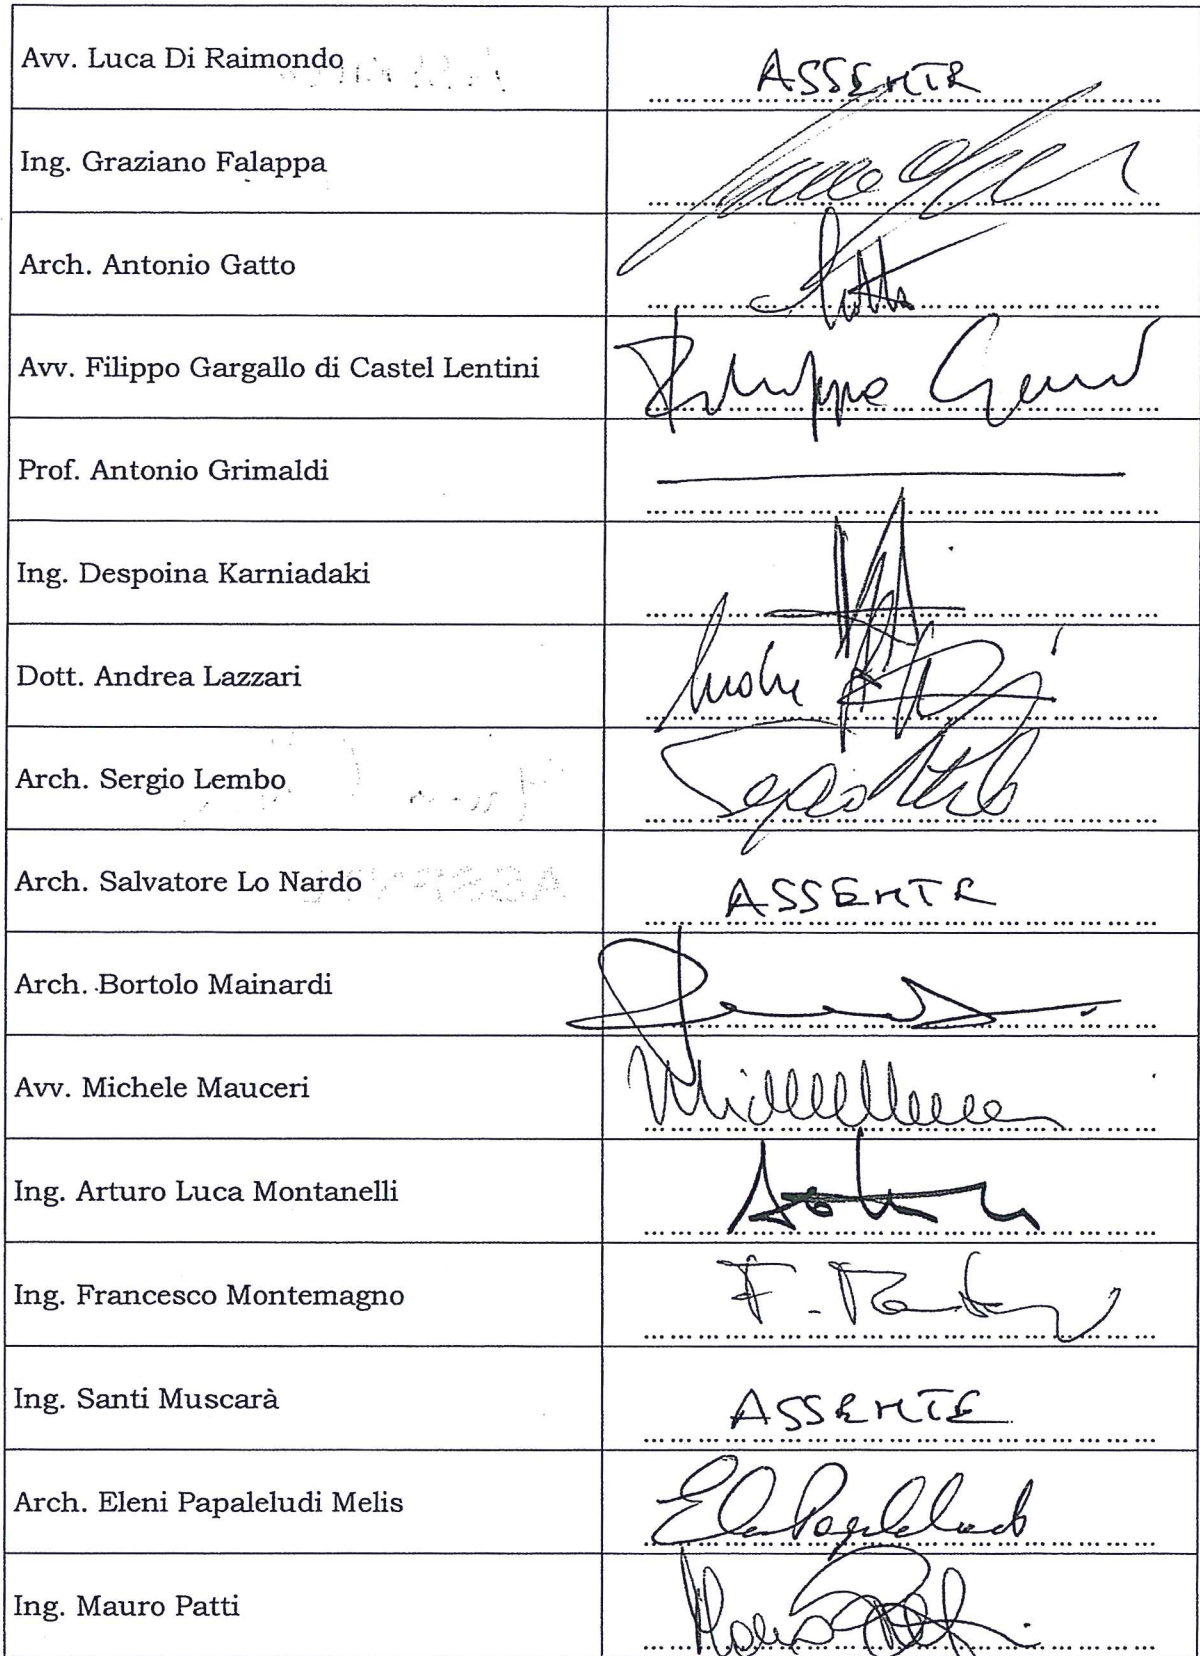 Avv. Luca Di Raimondo ASSENTE
Ing. Graziano Falappa
Arch. Antonio Gatto
Avv. Filippo Gargallo di Castel Lentini Filippo
Prof. Antonio Grimaldi
Ing. Despoina Karniadaki
Dott. Andrea Lazzari
Arch. Sergio Lembo
Arch. Salvatore Lo Nardo ASSENTE
Arch. Bortolo Mainardi
Avv. Michele Mauceri
Ing. Arturo Luca Montanelli
Ing. Francesco Montemagno F.
Ing. Santi Muscarà ASSENTE
Arch. Eleni Papaleludi Melis
Ing. Mauro Patti